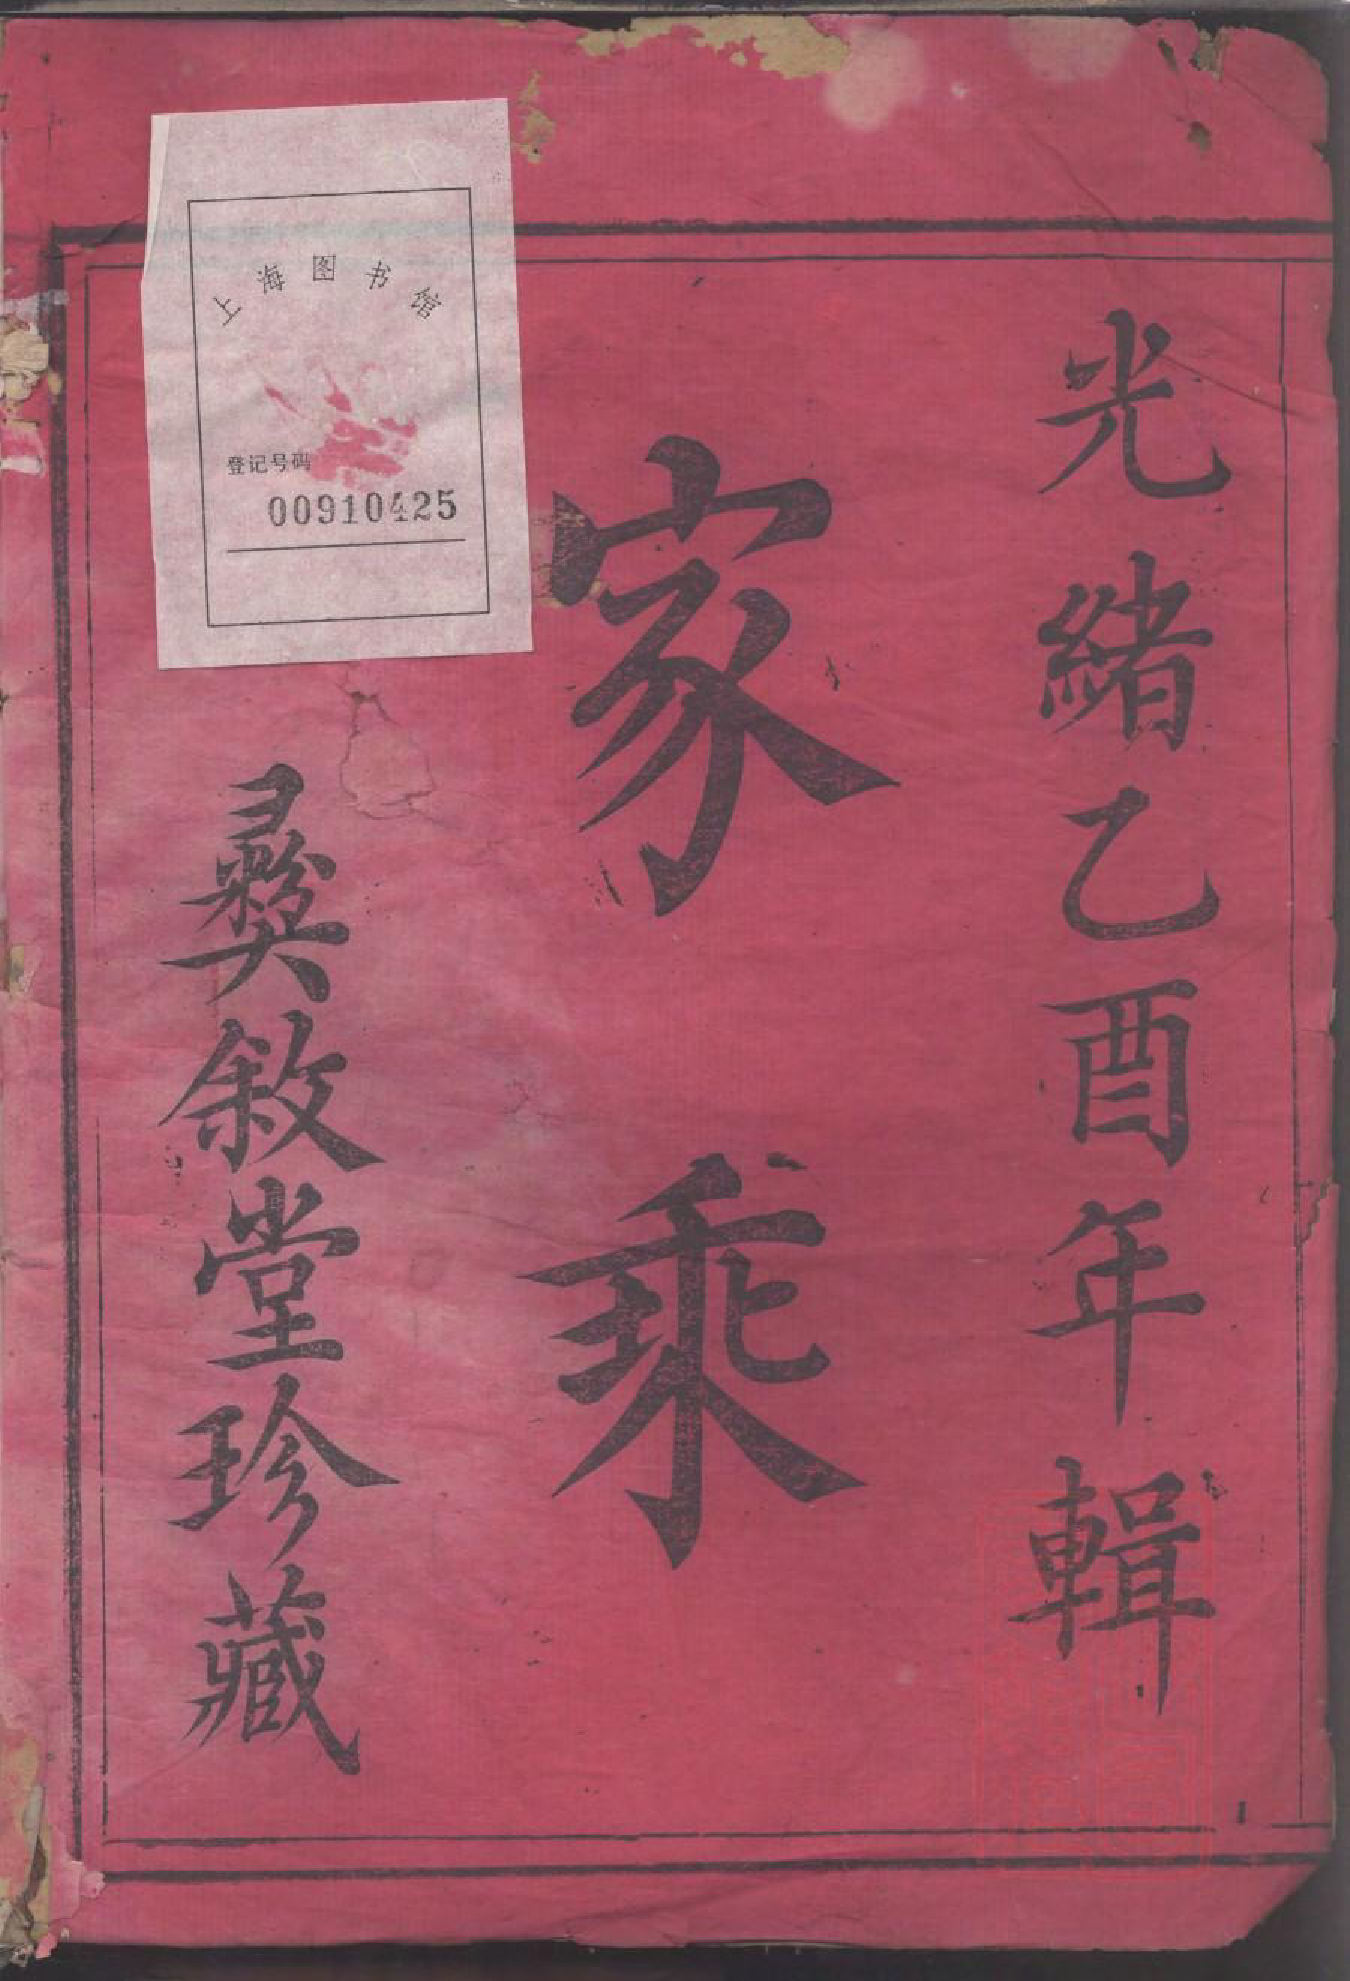 光緒乙酉年輯
家乘
彛敘堂珍藏
上海图书馆
登记号码
00910425